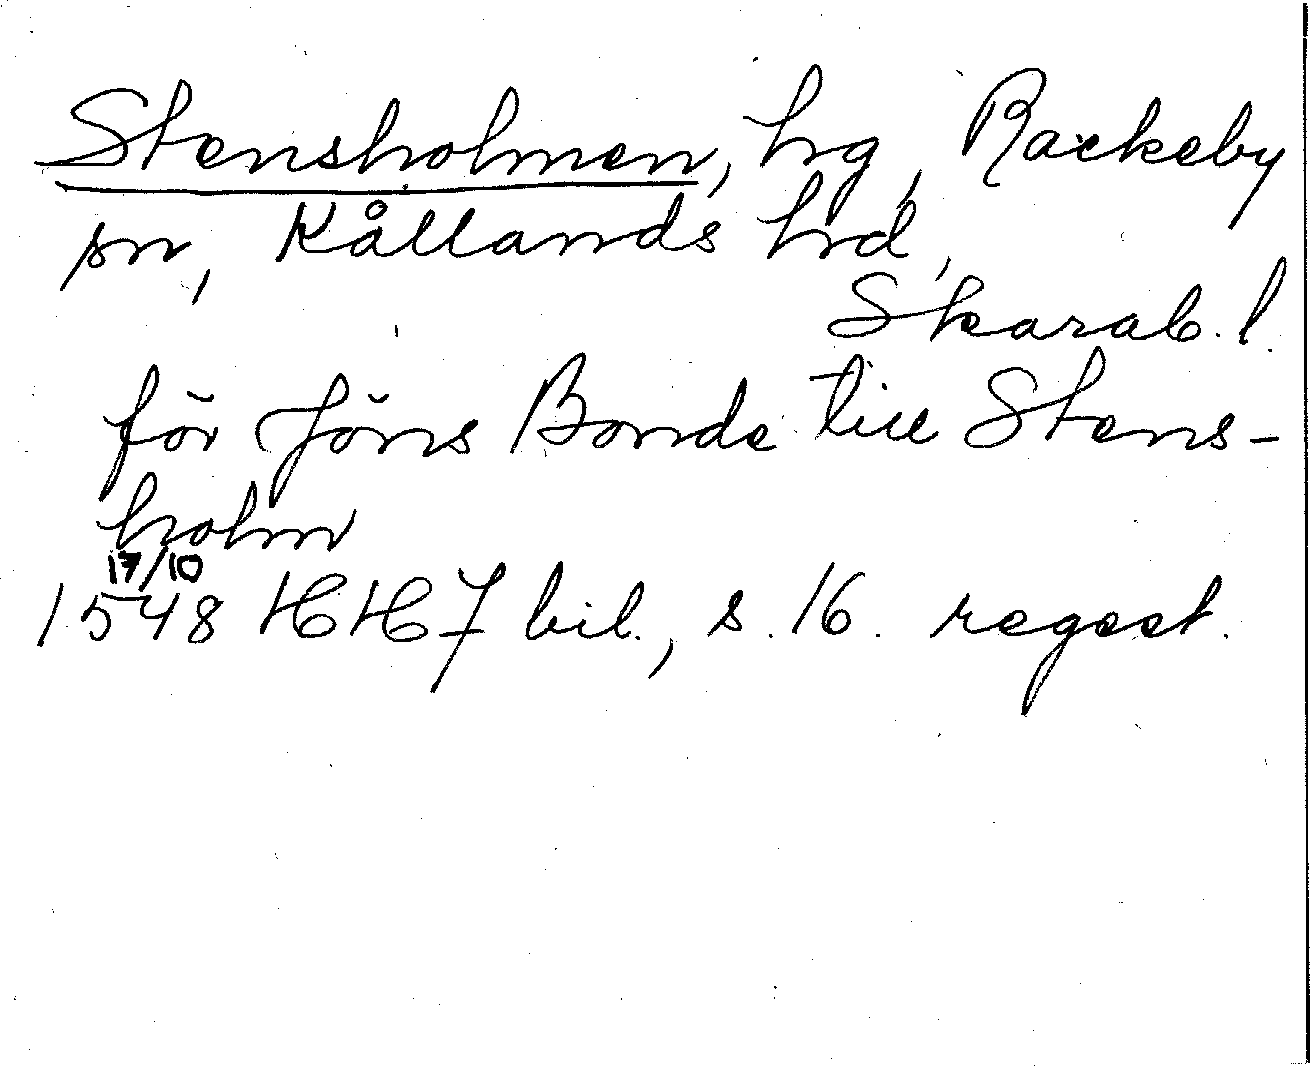 Stensholmen, hg, Rackeby
sn, Kållands hrd,
Skarab. l.
för Jöns Bonde till Stens-
holm
17/10
1548 HH 7 bil., s. 16. regest.